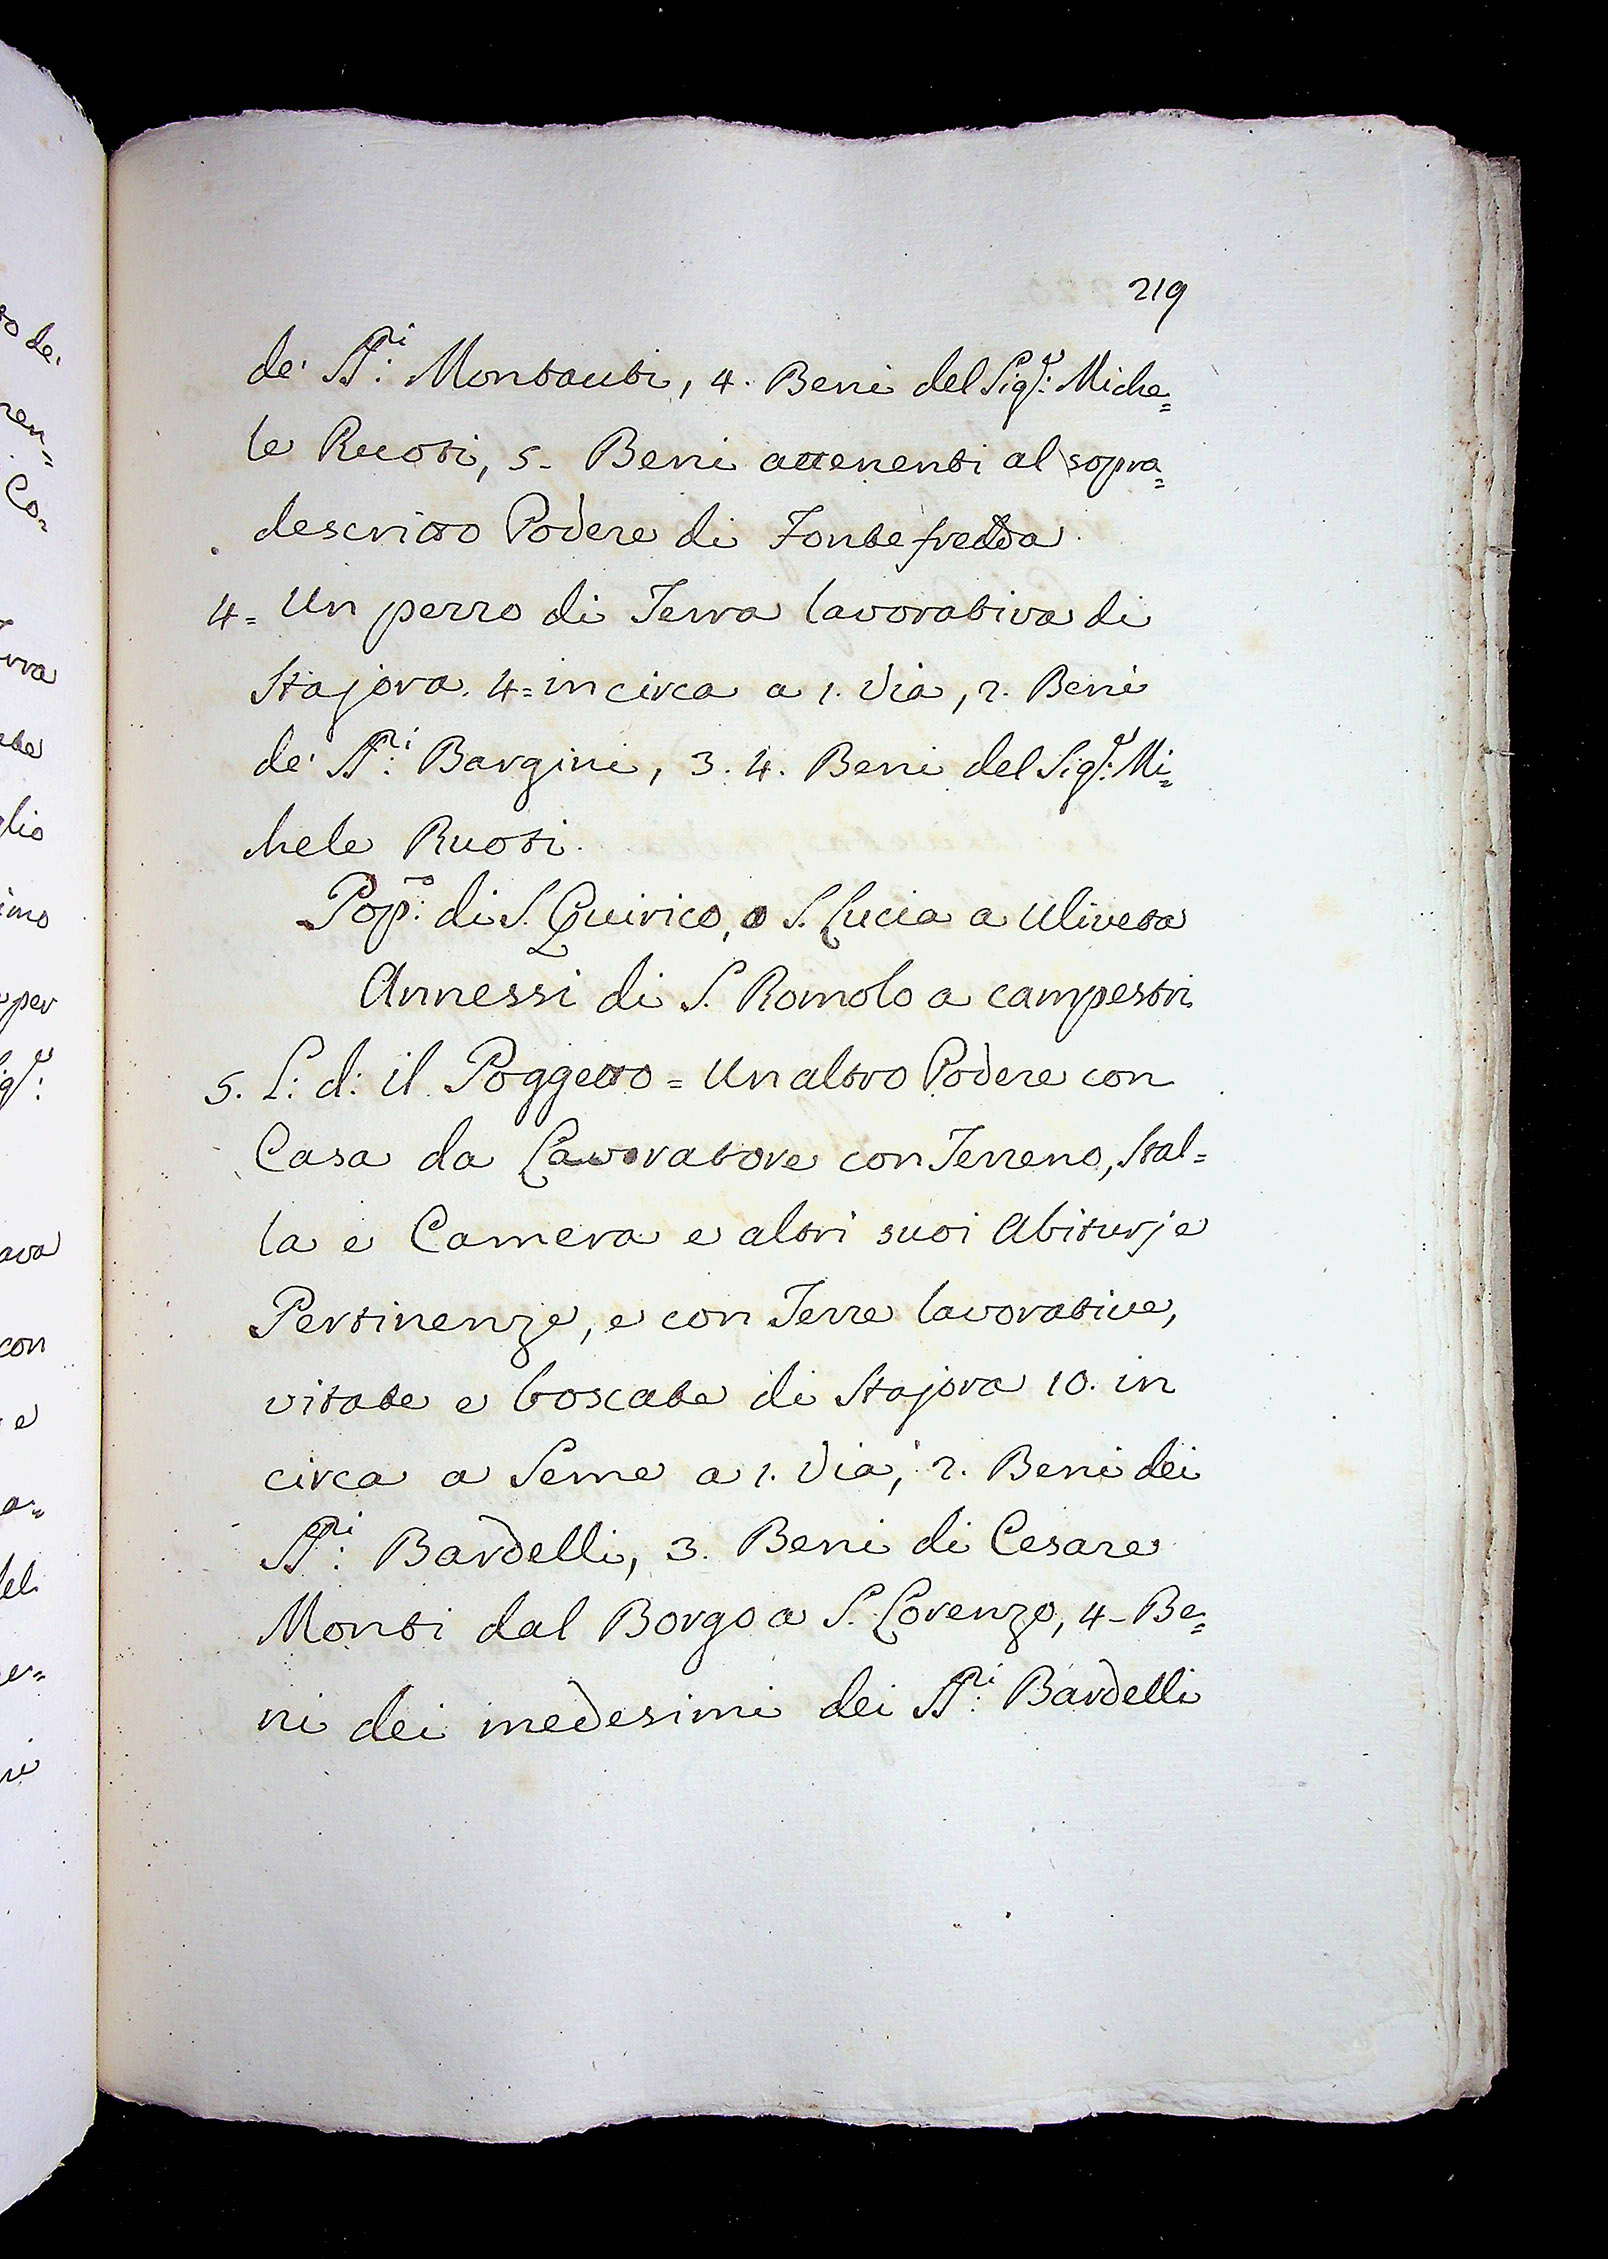 219
de' SS:ri Montauti, 4. Beni del Sig:r Miche=
le Ruoti, 5- Beni attenenti al sopra=
descritto Podere di Fontefredda.
4= Un pezzo di Terra lavorativa di
Stajora. 4= in circa a 1. Via, 2. Beni
de' SS:ri Bargini, 3. 4. Beni del Sig:r Mi=
hele Ruoti.
Pop:o di S. Quirico, o S. Lucia a Uliveta
Annessi di S. Romolo a campestri
5. L: d: il Poggetto = Un altro Podere con
Casa da Lavoratore con Terreno, Stal=
la e Camera e altri suoi Abiturj e
Pertinenze, e con Terre lavorative,
vitate e boscate di Stajora 10. in
circa a Seme a 1. Via, 2. Beni dei
SS:ri Bardelli, 3. Beni di Cesare
Monti dal Borgo a S. Lorenzo, 4- Be=
ni dei medesimi dei SS:ri Bardelli